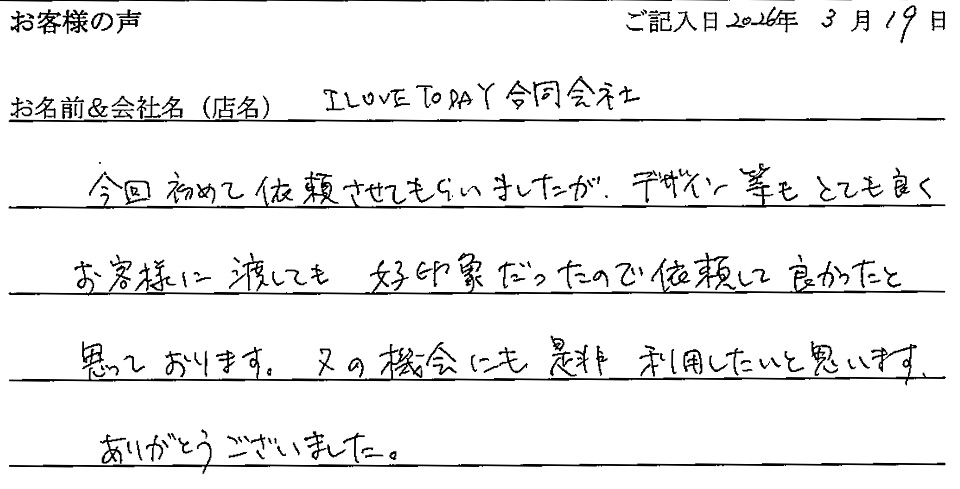 お客様の声 ご記入日 2026年 3月 19日
お名前&会社名（店名） I LOVE TODAY 合同会社
今回初めて依頼させてもらいましたが、デザイン等もとても良く
お客様に渡しても好印象だったので依頼して良かったと
思っております。又の機会にも是非利用したいと思います。
ありがとうございました。